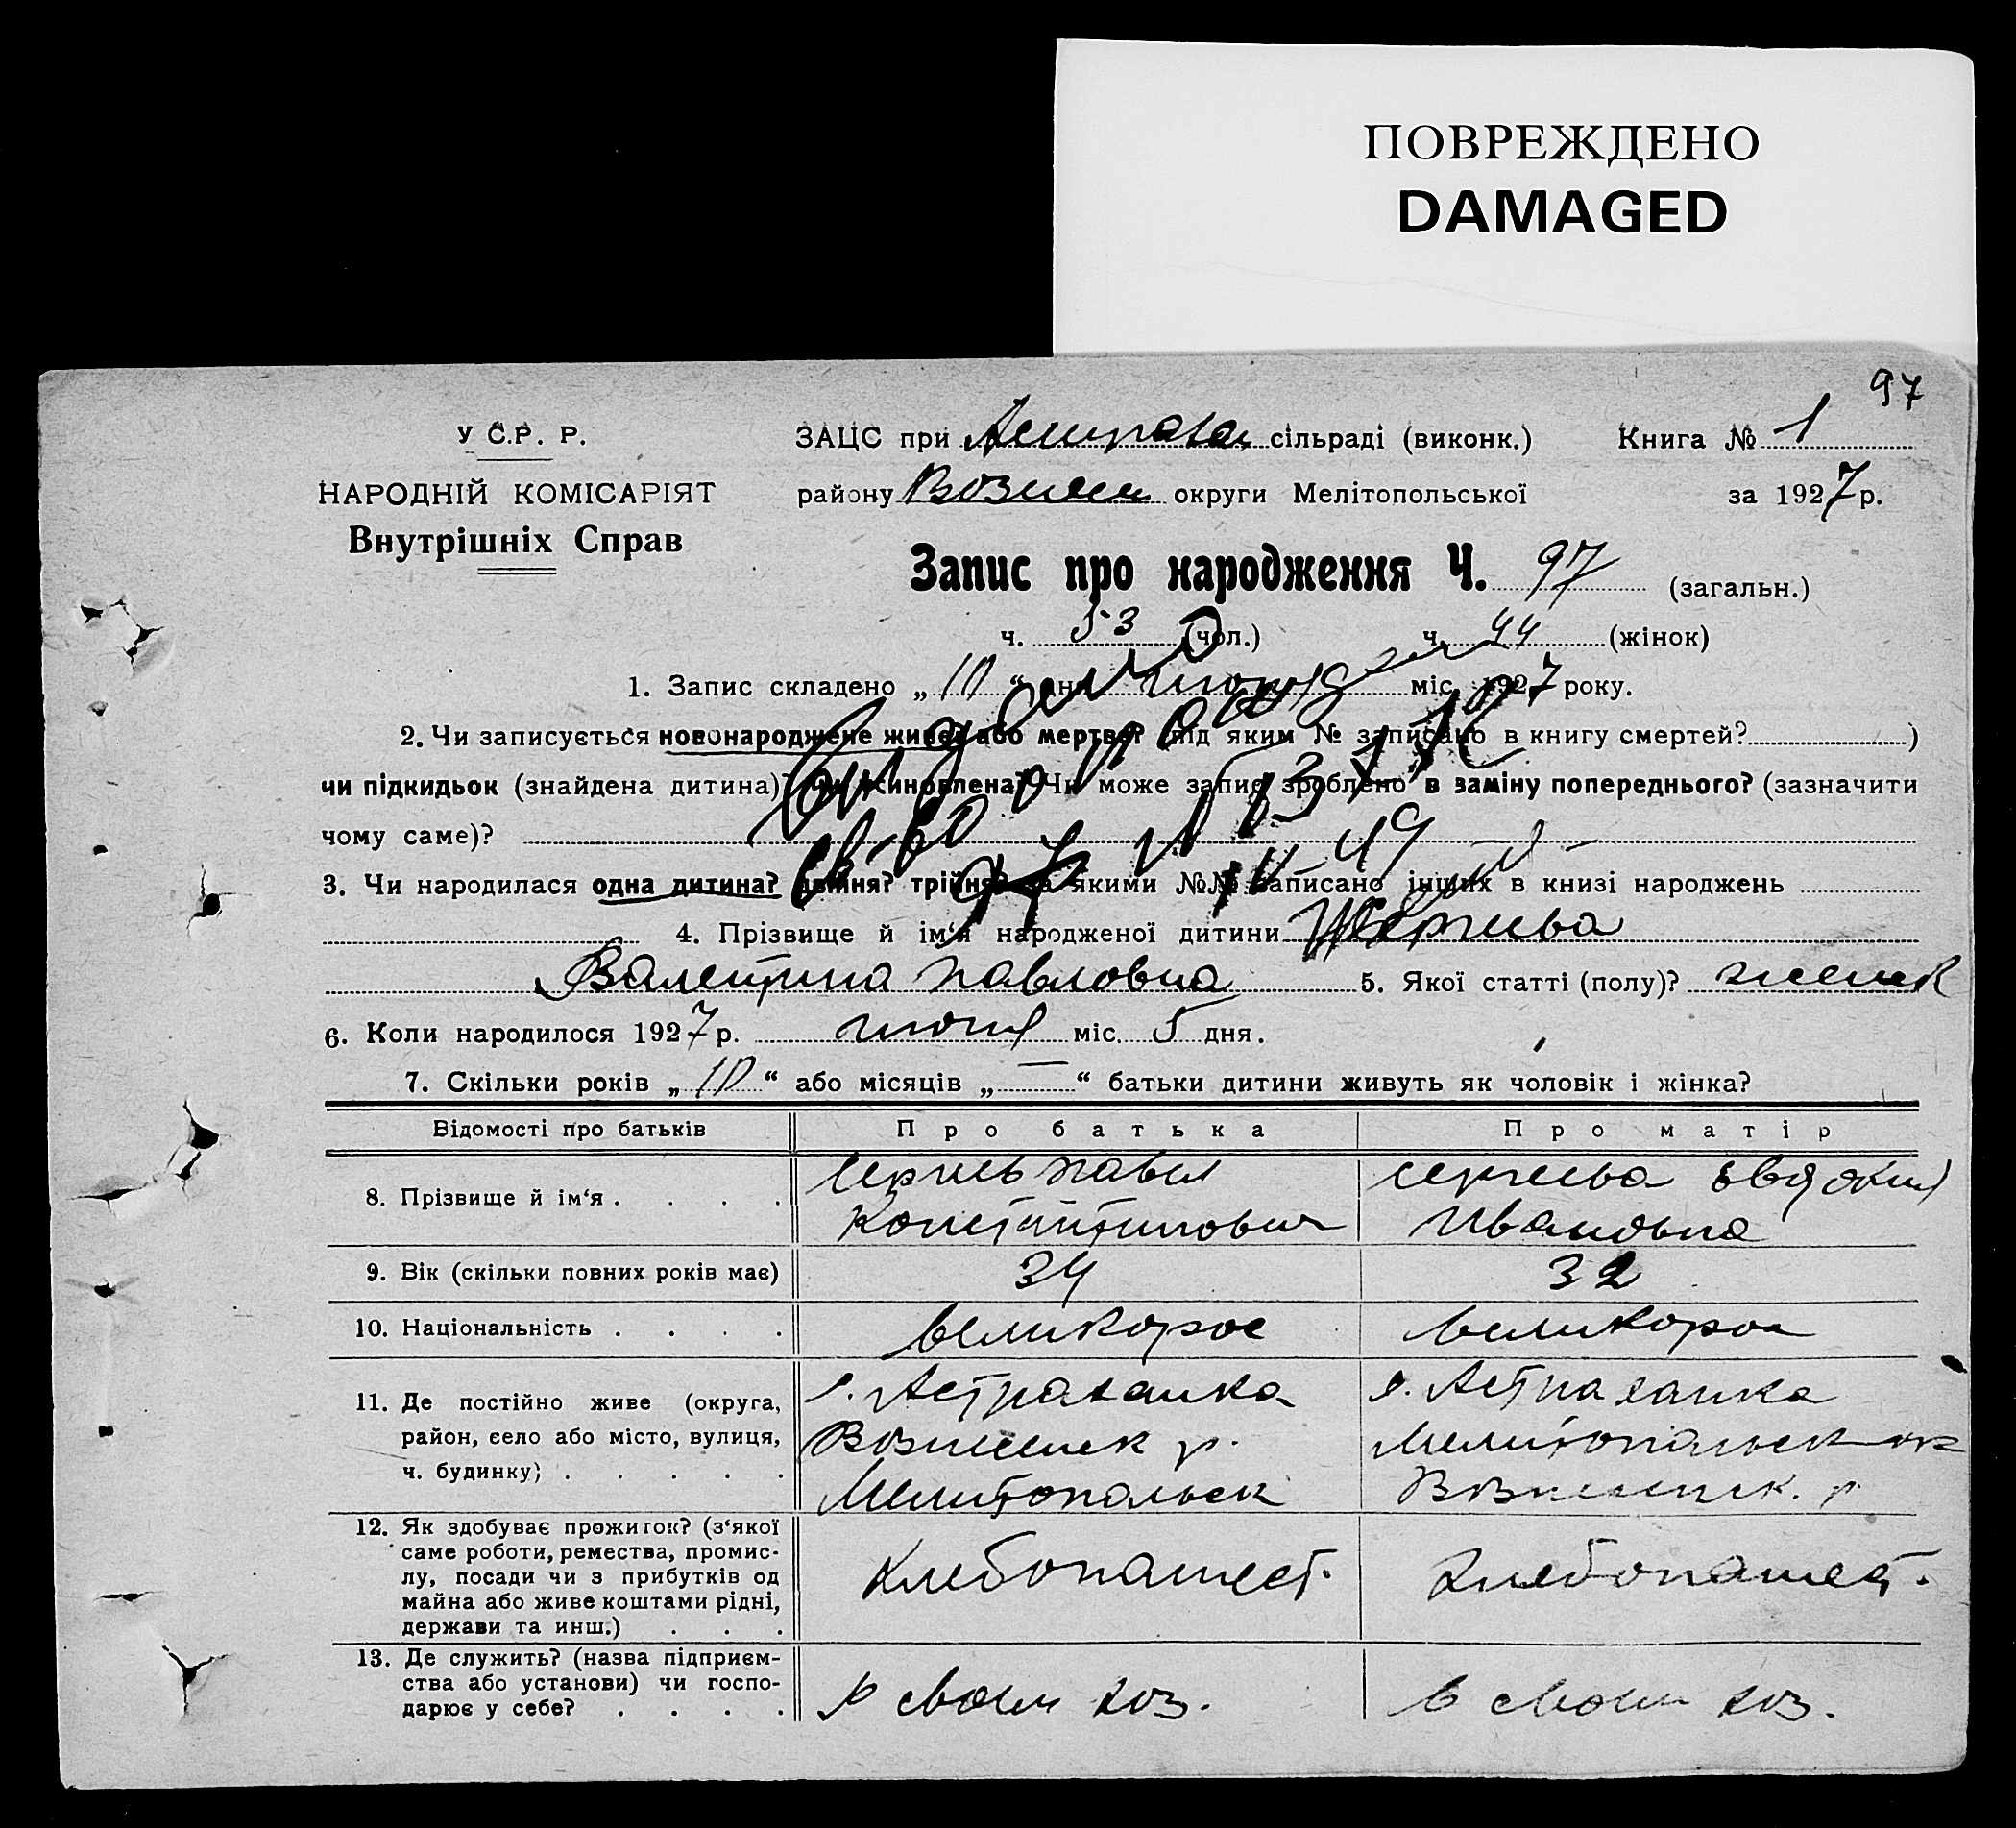 ПОВРЕЖДЕНО
DAMAGED
97
У С.Р. Р.
ЗАЦС при Астрахан сільраді (виконк.) Книга № 1
НАРОДНІЙ КОМІСАРІЯТ
району Вознесен округи Мелітопольської за 1927 р.
Внутрішніх Справ
Запис про народження Ч. 97 (загальн.)
ч. 53 (чол.) ч. 44 (жінок)
1. Запис складено „10“ дня июня міс. 1927 року.
2. Чи записується новонароджене живе? або мертве? під яким № записано в книгу смертей? )
чи підкидьок (знайдена дитина)? чи усиновлена? Чи може запис зроблено в заміну попереднього? (зазначити
чому саме)?
3. Чи народилася одна дитина? двійня? трійня? за якими №№ записано інших в книзі народжень
4. Прізвище й ім‘я народженої дитини
Валентина Павловна 5. Якої статті (полу)? женск
6. Коли народилося 1927 р. июня міс. 5 дня.
7. Скільки років „10“ або місяців „—“ батьки дитини живуть як чоловік і жінка?
Відомості про батьків Про батька Про матір
8. Прізвище й ім‘я . . . . Сергиев Павел Константинович Сергиева Евдокия Ивановна
9. Вік (скільки повних років має) 34 32
10. Національність . . . . великорос великорос
11. Де постійно живе (округа, район, село або місто, вулиця, ч. будинку) . . . . . с. Астраханка Вознесенск р. Мелитопольск с. Астраханка Мелитопольск ок Вознесенск. р
12. Як здобуває прожиток? (з‘якої саме роботи, ремества, промислу, посади чи з прибутків од майна або живе коштами рідні, держави та инш.) . . . Хлебопашест. Хлебопашест.
13. Де служить? (назва підприємства або установи) чи господарює у себе? . . . . в своем хоз. в своем хоз.